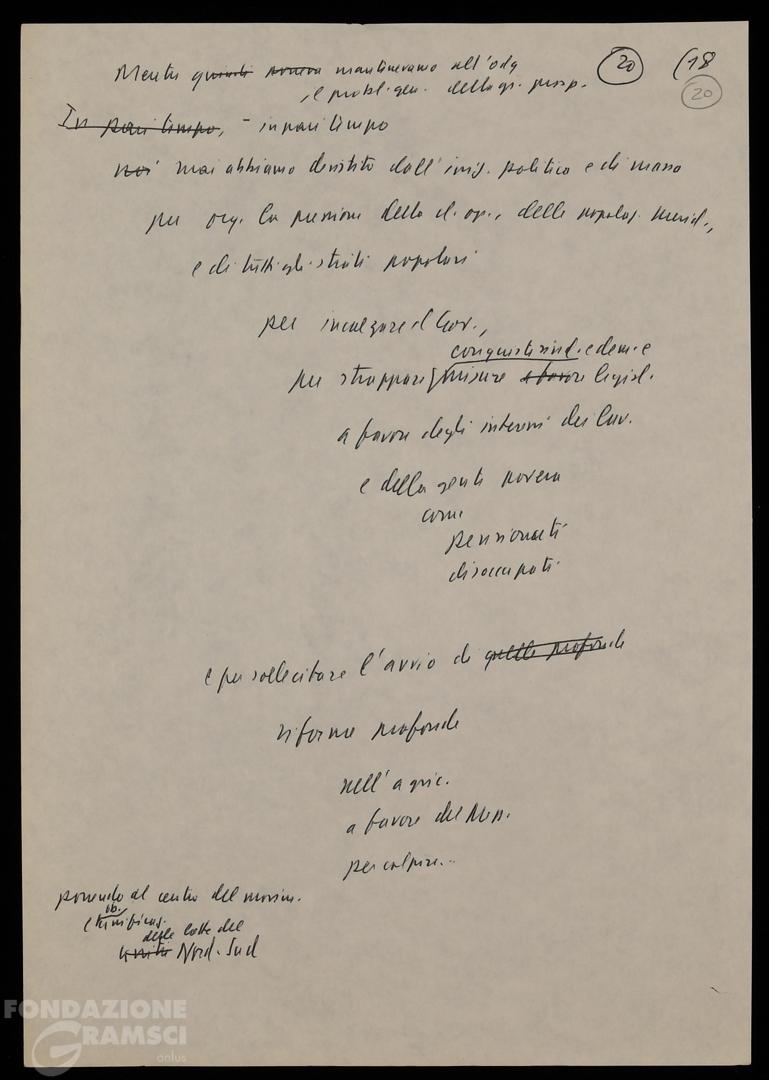 Mentre quindi poneva mantinevamo all'odg (20) (18
, e probl. gen. della gr. prosp. (20)
In pari tempo, - in pari tempo
noi mai abbiamo desistito dall'iniz. politica e di massa
per org. la pressione della cl. op., delle popolaz. merid.,
e di tutti gli strati popolari
per incalzare il Gov.,
conquiste sind. e dem. e
per strappare misure a favore legisl.
a favore degli interessi dei lav.
e della gente povera
come
pensionati
disoccupati
e per sollecitare l'avvio di quelle profonde
riforme profonde
nell'agric.
a favore del Mezz.
per colpire...
ponendo al centro del movim.
ob.
e unificaz.
delle lotte del
unità Nord-Sud
FONDAZIONE
GRAMSCI
onlus